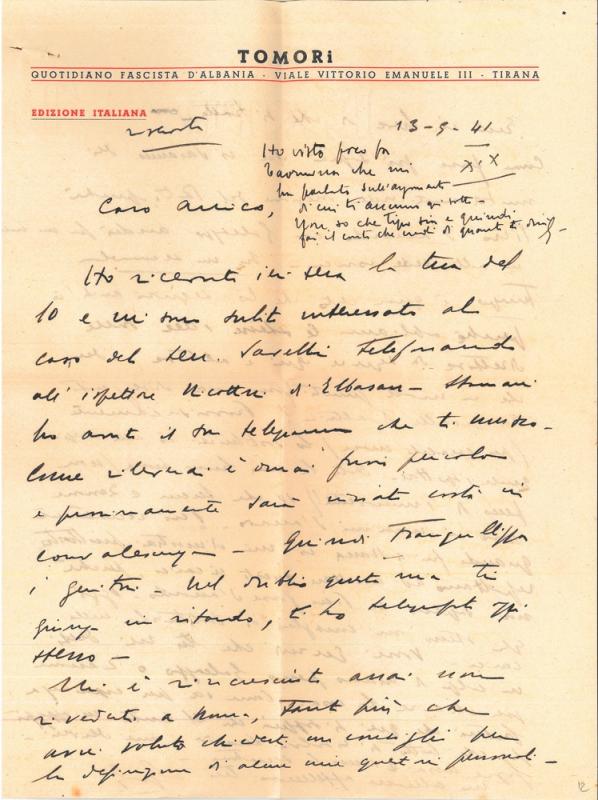 TOMORi
QUOTIDIANO FASCISTA D'ALBANIA - VIALE VITTORIO EMANUELE III - TIRANA
EDIZIONE ITALIANA
13-9-41
XIX
Ho visto poco fa
che mi
ha parlato sull'argomento
di cui ti accenno qui sotto -
Non so che tipo sia e quindi
fai il conto che credi di quanto ti
Caro amico,
Ho ricevuto ieri sera la tua del
10 e mi sono subito interessato al
caso del ten. Savelli telefonando
all'ispettore di Elbasan - Stamani
ho avuto il suo telegramma che ti unisco -
Come rileverai è ormai fuori pericolo
e prossimamente sarà inviato costà in
convalescenza - Quindi tranquillizza
i genitori - Nel dubbio questa mia ti
giunga in ritardo, ti ho telegrafato oggi
stesso -
Mi è rincresciuto assai non
vederti a Roma, tanto più che
avrei voluto chiederti un consiglio per
la definizione di alcune mie questioni personali -
12